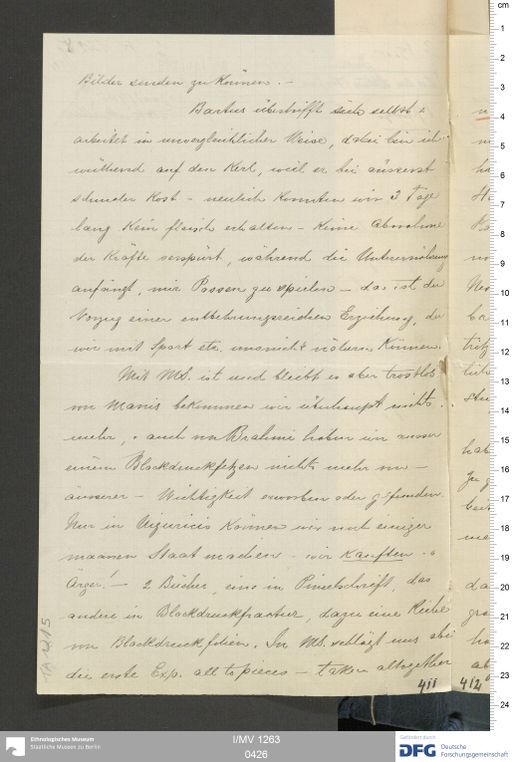 Bilder senden zu können. –
Bartus übertrifft sich selbst u.
arbeitet in unvergleichlicher Weise, dabei bin ich
wüthend auf den Kerl, weil er bei äusserst
elender Kost – neulich konnten wir 3 Tage
lang kein fleisch erhalten – keine Abnahme
der Kräfte verspürt, während die Unterernährung
anfängt, mir Possen zu spielen – das ist der
Vorzug einer entbehrungsreichen Erziehung, der
wir mit Sport etc. uns nicht nähern können.
Mit MS. ist und bleibt es aber trostlos
von Manis bekommen wir überhaupt nichts
mehr, u. auch von Brahmi haben wir ausser
einem Blockdruckfetzen nichts mehr von –
äusserer – Wichtigkeit erworben oder gefunden.
Nur in Uiguricis können wir mit einiger
maassen Staat machen – wir kauften – o
Ärger! – 2 Bücher, eins in Pinselschrift, das
andere in Blockdruckfractur, dazu eine Reihe
von Blockdruckfolien. In MS. schlägt uns aber
die erste Exp. all to pieces – taken altogether
411 412
TA 1215
cm
1
2
3
4
5
6
7
8
9
10
11
12
13
14
15
16
17
18
19
20
21
22
23
24
Ethnologisches Museum
Staatliche Museen zu Berlin
I/MV 1263
0426
Gefördert durch
DFG Deutsche
Forschungsgemeinschaft